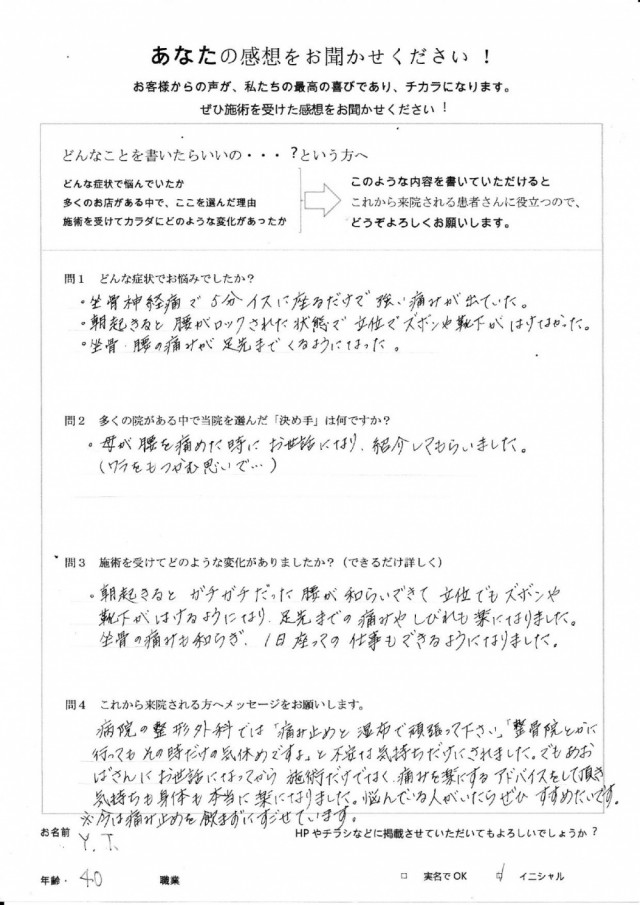 あなたの感想をお聞かせください！
お客様からの声が、私たちの最高の喜びであり、チカラになります。
ぜひ施術を受けた感想をお聞かせください！
どんなことを書いたらいいの・・・？という方へ
どんな症状で悩んでいたか
多くのお店がある中で、ここを選んだ理由
施術を受けてカラダにどのような変化があったか
このような内容を書いていただけると
これから来院される患者さんに役立つので、
どうぞよろしくお願いします。
問１ どんな症状でお悩みでしたか？
・坐骨神経痛で５分イスに座るだけで強い痛みが出ていた。
・朝起きると腰がロックされた状態で立位でズボンや靴下がはけなかった。
・坐骨・腰の痛みが足先までくるようになった。
問２ 多くの院がある中で当院を選んだ「決め手」は何ですか？
・母が腰を痛めた時にお世話になり、紹介してもらいました。
（ワラをもつかむ思いで…）
問３ 施術を受けてどのような変化がありましたか？（できるだけ詳しく）
・朝起きるとガチガチだった腰が和らいできて立位でもズボンや
靴下がはけるようになり、足先までの痛みやしびれも楽になりました。
坐骨の痛みも和らぎ、１日座っての仕事もできるようになりました。
問４ これから来院される方へメッセージをお願いします。
病院の整形外科では「痛み止めと湿布で頑張って下さい」「整骨院とかに
行ってもその時だけの気休めですよ」と不安な気持ちだけにされました。でもあお
ばさんにお世話になってから施術だけでなく、痛みを楽にするアドバイスをして頂き
気持ちも身体も本当に楽になりました。悩んでいる人がいたらぜひすすめたいです。
※今は痛み止めを飲まずにすごせています。
お名前 Y.T. HPやチラシなどに掲載させていただいてもよろしいでしょうか？
年齢・ 40 職業 □ 実名でOK イニシャル